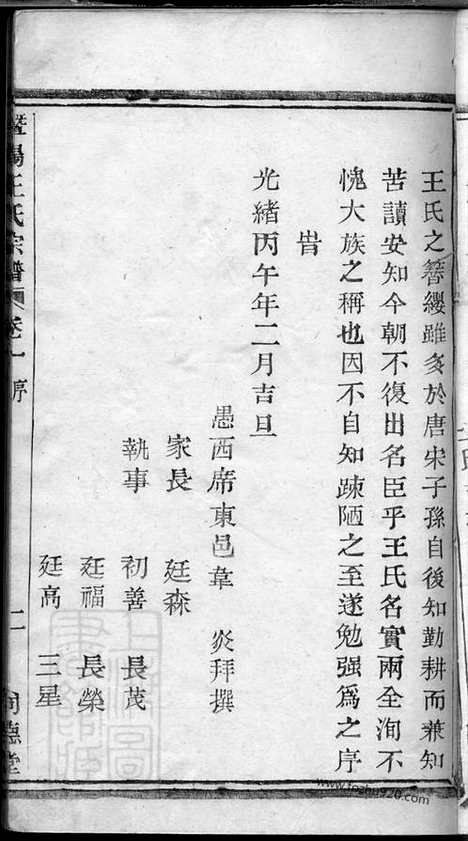 王氏之簪纓雖多於唐宋子孫自後知勤耕而兼知
苦讀安知今朝不復出名臣乎王氏名實兩全洵不
愧大族之稱也因不自知踈陋之至遂勉强為之序
旹
光緒丙午年二月吉旦
愚西席東邑韋　炎拜撰
家長　廷森
執事　初善　長茂
廷福　長榮
廷高　三星
暨陽王氏宗譜　卷一　序　二　德堂
www.fozhu920.com